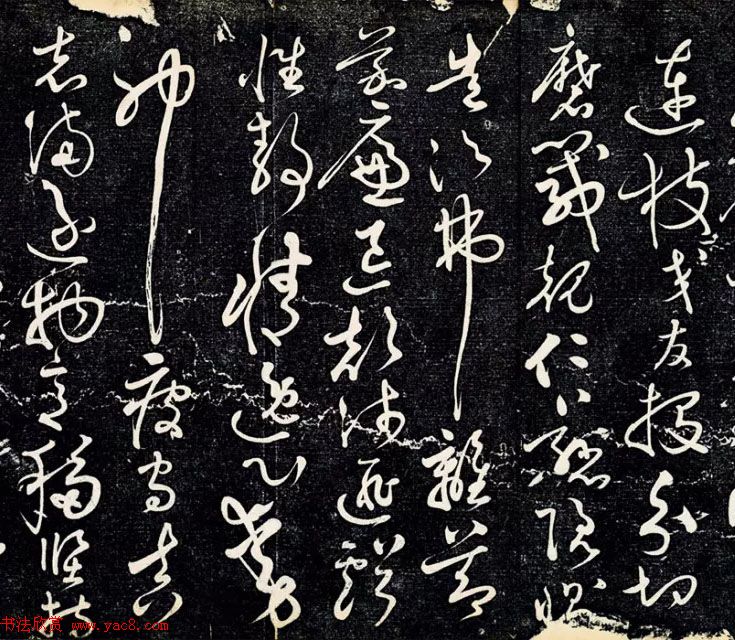 連枝交友投分切
磨箴規仁慈隱惻
造次弗離節
義廉退顛沛匪虧
性靜情逸心動
神疲守真
志滿逐物意移堅持
书法欣赏 www.yac8.com